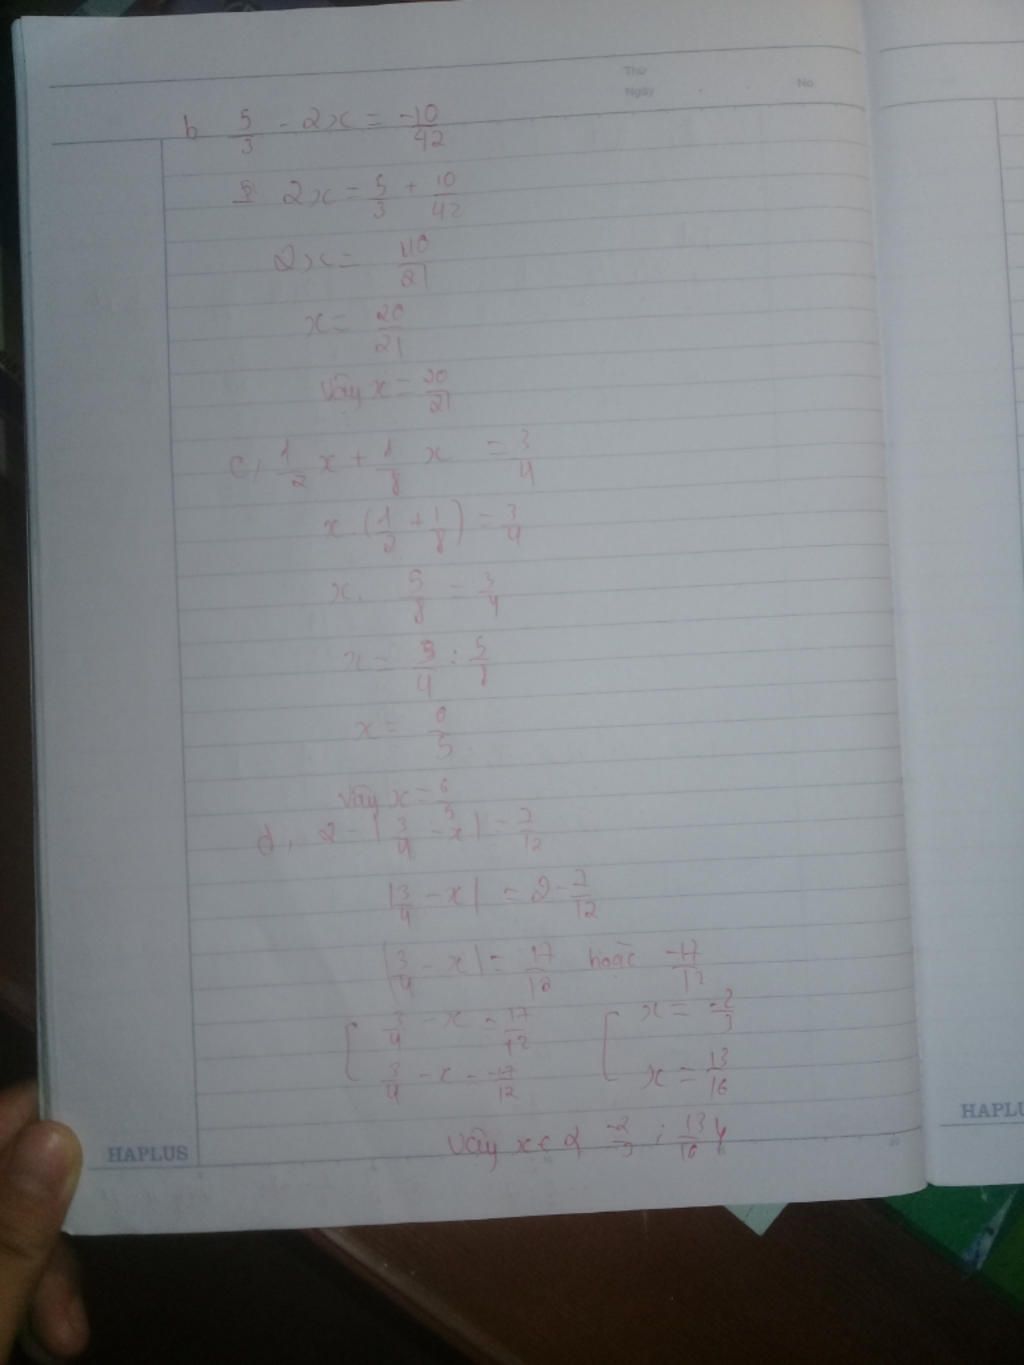 Thứ
Ngày . . No
b 5/3 - 2x = -10/42
2x = 5/3 + 10/42
2x = 110/21
x = 20/21
Vậy x = 20/21
c, 1/2 x + 1/8 x = 3/4
x. (1/2 + 1/8) = 3/4
x. 5/8 = 3/4
x = 3/4 : 5/8
x = 6/5
Vậy x = 6/5
d, 2 - |3/4 - x| = 7/12
|3/4 - x| = 2 - 7/12
|3/4 - x| = 17/12 hoặc -17/12
[ 3/4 - x = 17/12 [ x = -2/3
3/4 - x = -17/12 x = 13/16
Vậy x ∈ { -2/3 ; 13/16 }
HAPLUS
HAPLU